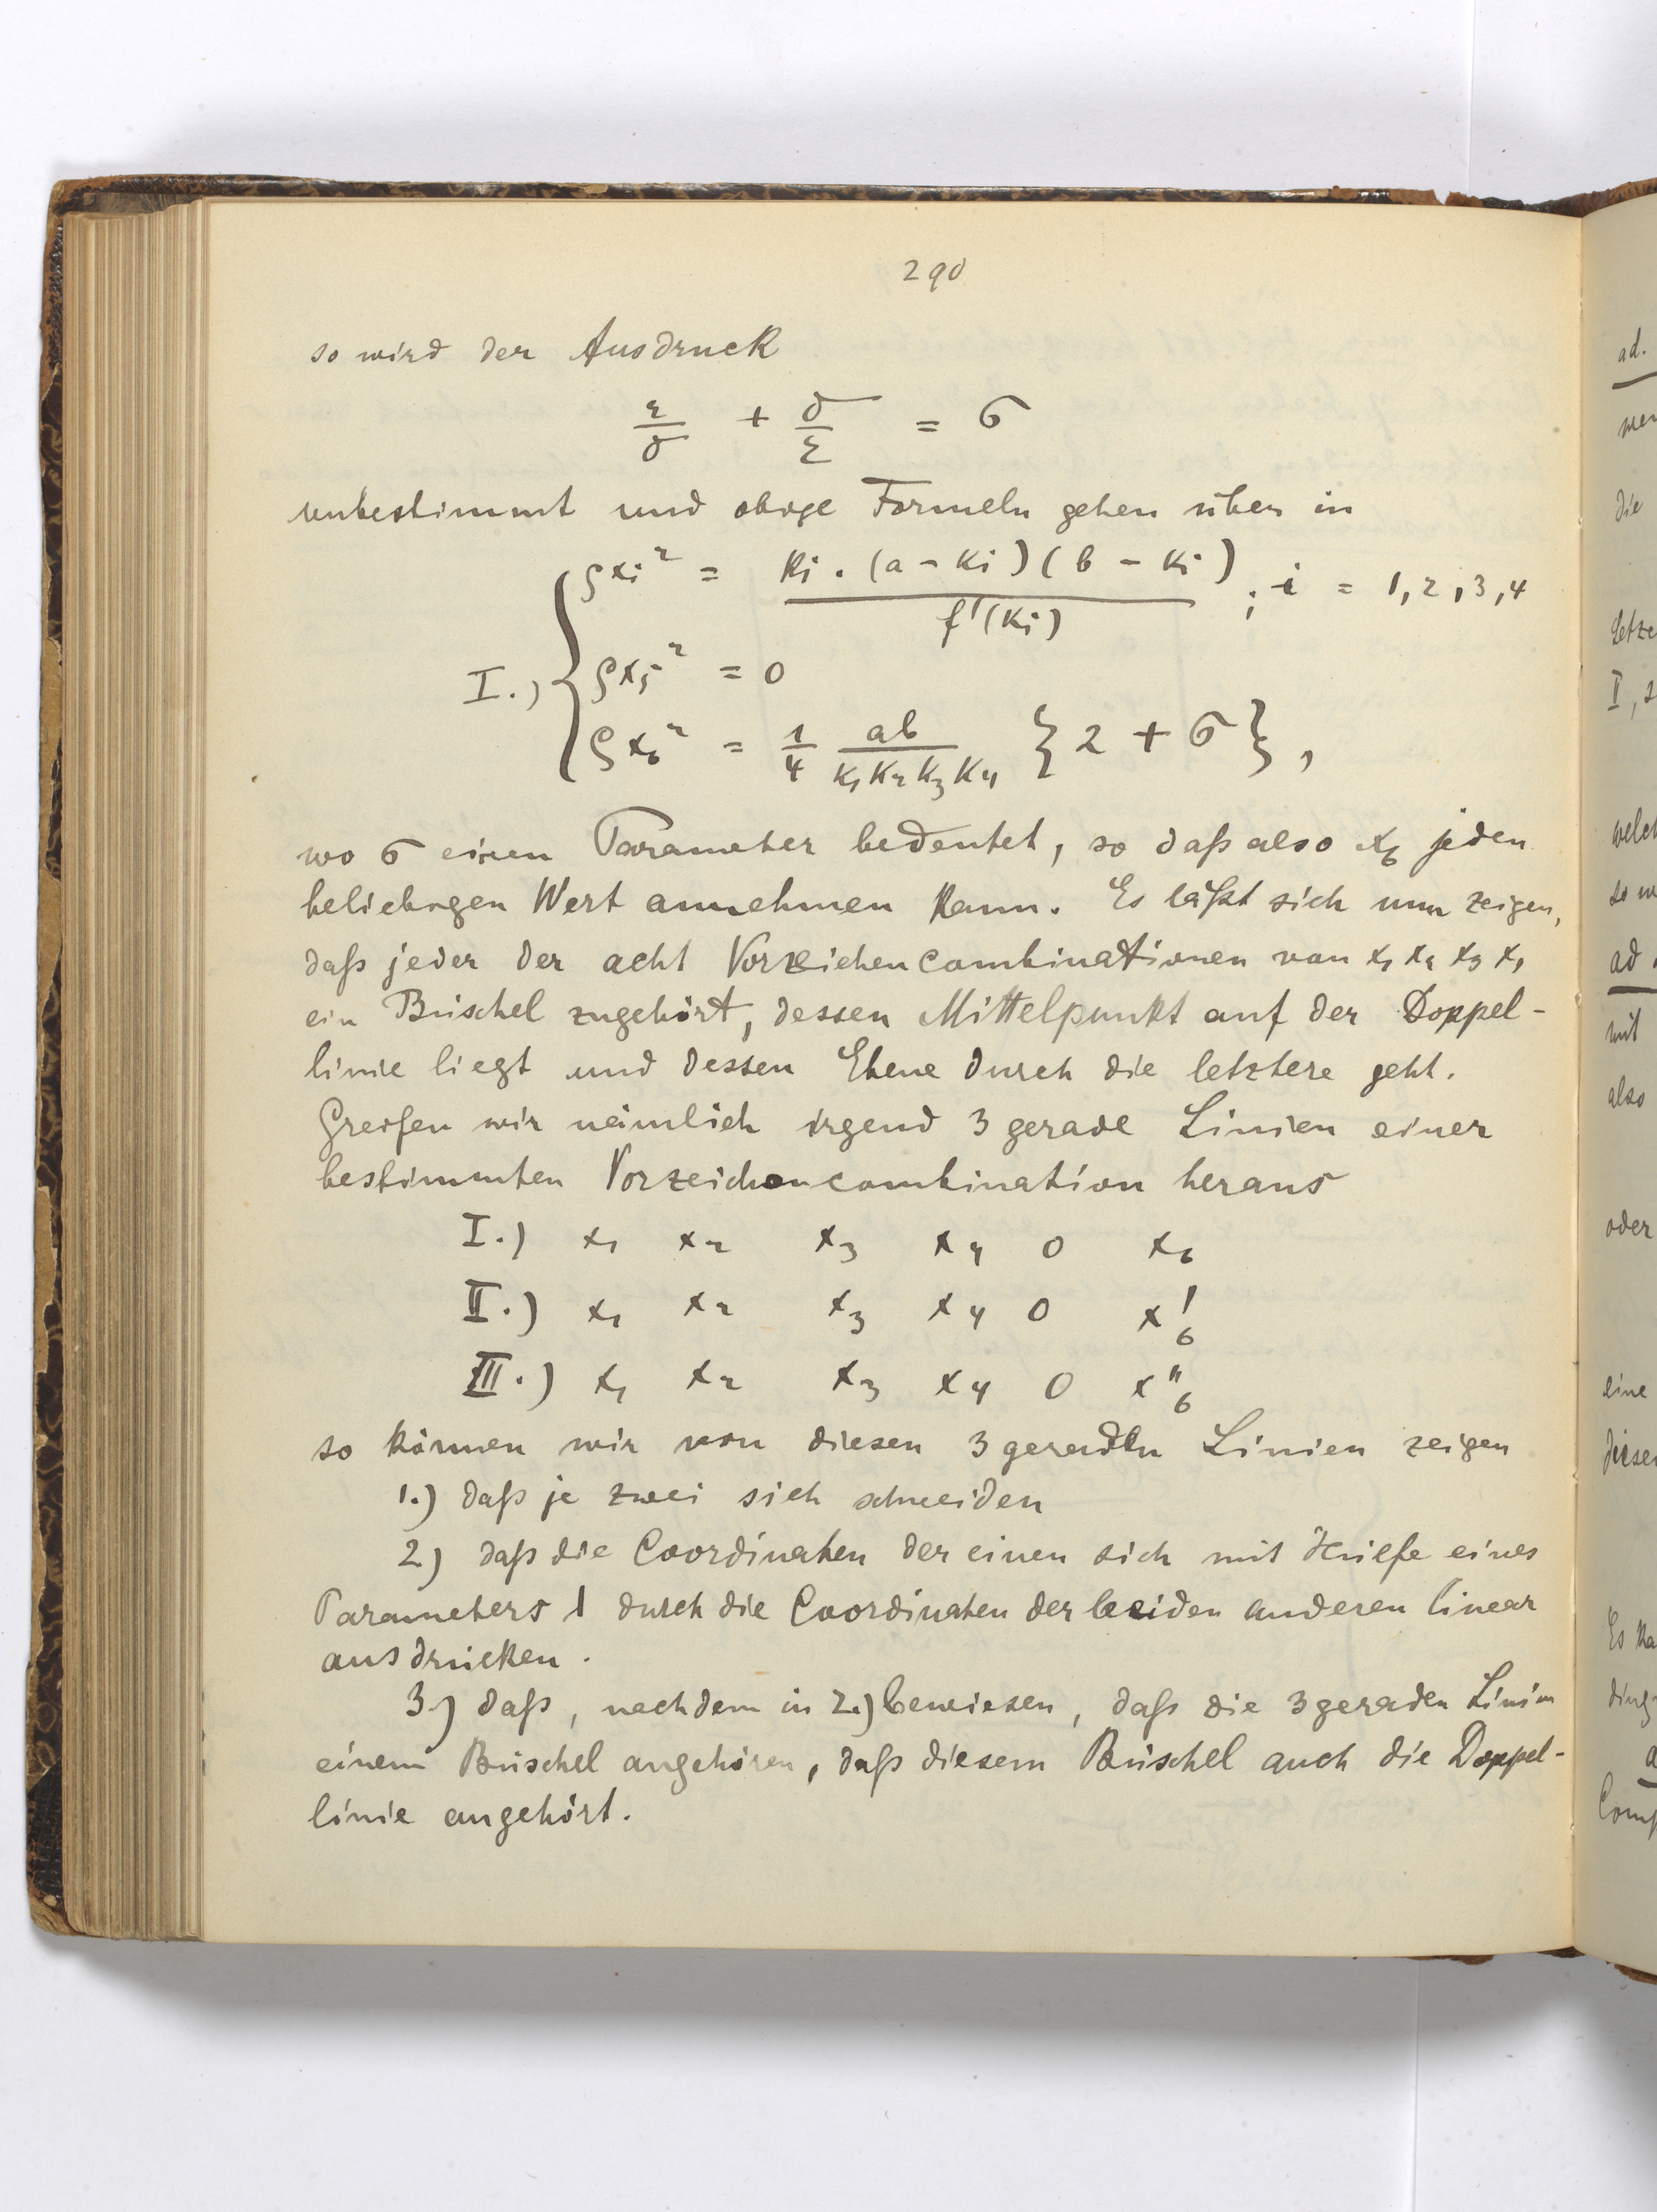 290
so wird der Ausdruck
ε/δ + δ/ε = σ
unbestimmt und obige Formeln gehen über in
I.) { ρxi² = ki . (a - ki)(b - ki) / f'(ki) ; i = 1,2,3,4
ρx5² = 0
ρx6² = 1/4 ab/k1k2k3k4 {2 + σ},
wo σ einen Parameter bedeutet, so daß also x6 jeden
beliebigen Wert annehmen kann. Es läßt sich nun zeigen,
daß jeder der acht Vorzeichencombinationen von x1 x2 x3 x4
ein Büschel zugehört, dessen Mittelpunkt auf der Doppel-
linie liegt und dessen Ebene durch die letztere geht.
Greifen wir nämlich irgend 3 gerade Linien einer
bestimmten Vorzeichencombination heraus
I.) x1 x2 x3 x4 0 x6
II.) x1 x2 x3 x4 0 x'6
III.) x1 x2 x3 x4 0 x"6
so können wir von diesen 3 geraden Linien zeigen
1.) daß je zwei sich schneiden
2) daß die Coordinaten der einen sich mit Hülfe eines
Parameters λ durch die Coordinaten der beiden anderen linear
ausdrücken.
3.) daß, nachdem in 2.) bewiesen, daß die 3 geraden Linien
einem Büschel angehören, daß diesem Büschel auch die Doppel-
linie angehört.
ad.
die
I, s
ad
mit
also
oder
eine